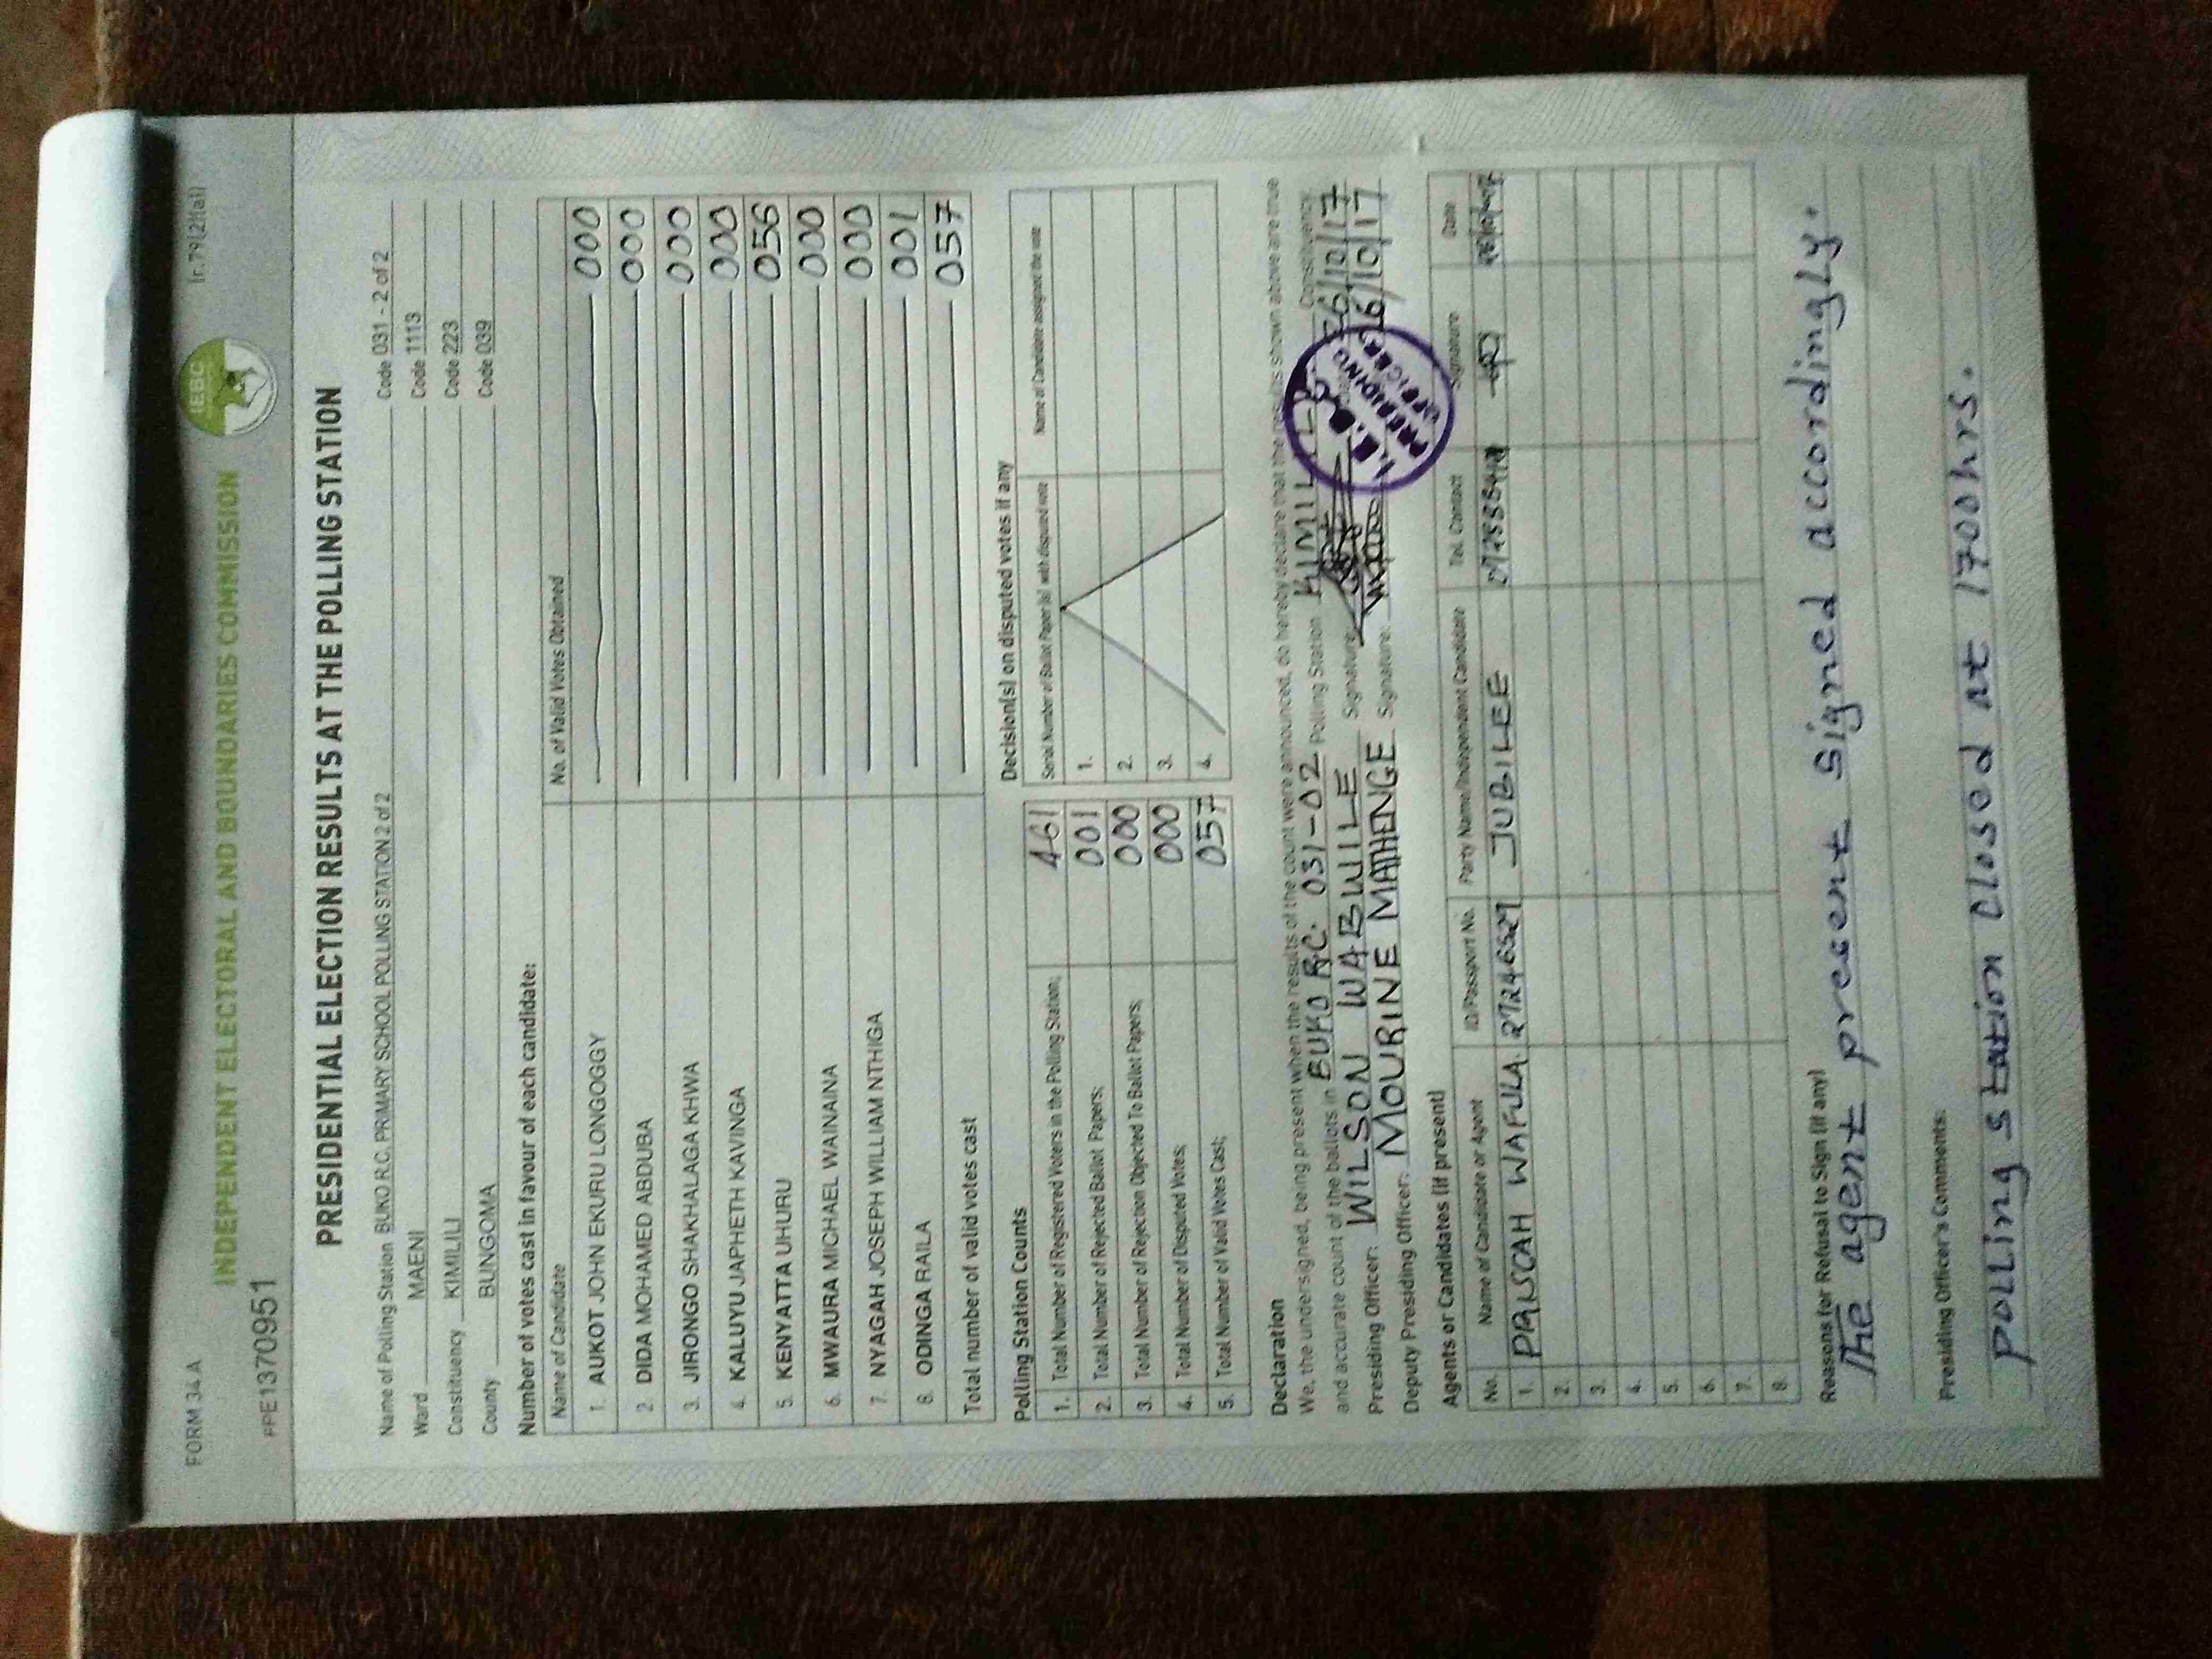 FORM 34A
(r.79(2)(a))
IEBC
INDEPENDENT ELECTORAL AND BOUNDARIES COMMISSION
PPE1370951
PRESIDENTIAL ELECTION RESULTS AT THE POLLING STATION
Name of Polling Station BUKO R.C. PRIMARY SCHOOL POLLING STATION 2 of 2 Code 031 - 2 of 2
Ward MAENI Code 1113
Constituency KIMILILI Code 223
County BUNGOMA Code 039
Number of votes cast in favour of each candidate:
Name of Candidate No. of Valid Votes Obtained
1. AUKOT JOHN EKURU LONGOGGY 000
2. DIDA MOHAMED ABDUBA 000
3. JIRONGO SHAKHALAGA KHWA 000
4. KALUYU JAPHETH KAVINGA 000
5. KENYATTA UHURU 056
6. MWAURA MICHAEL WAINAINA 000
7. NYAGAH JOSEPH WILLIAM NTHIGA 000
8. ODINGA RAILA 001
Total number of valid votes cast 057
Polling Station Counts
1. Total Number of Registered Voters in the Polling Station; 461
2. Total Number of Rejected Ballot Papers; 001
3. Total Number of Rejection Objected To Ballot Papers; 000
4. Total Number of Disputed Votes; 000
5. Total Number of Valid Votes Cast; 057
Decision(s) on disputed votes if any
Serial Number of Ballot Paper(s) with disputed vote Name of Candidate assigned the vote
1.
2.
3.
4.
Declaration
We, the undersigned, being present when the results of the count were announced, do hereby declare that the results shown above are true
and accurate count of the ballots in BUKO R.C. 031-02 Polling Station Constituency.
Presiding Officer: WILSON WABWILE Signature: 26/10/17
Deputy Presiding Officer: MOURINE MATHENGE Signature: 26/10/17
PRESIDING OFFICER
Agents or Candidates (if present)
No. Name of Candidate or Agent ID/Passport No. Party Name/Independent Candidate Tel. Contact Signature Date
1. PRISCAH WAFULA JUBILEE
2.
3.
4.
5.
6.
7.
8.
Reasons for Refusal to Sign (if any)
The agent present signed accordingly.
Presiding Officer's Comments:
polling station closed at 1700hrs.